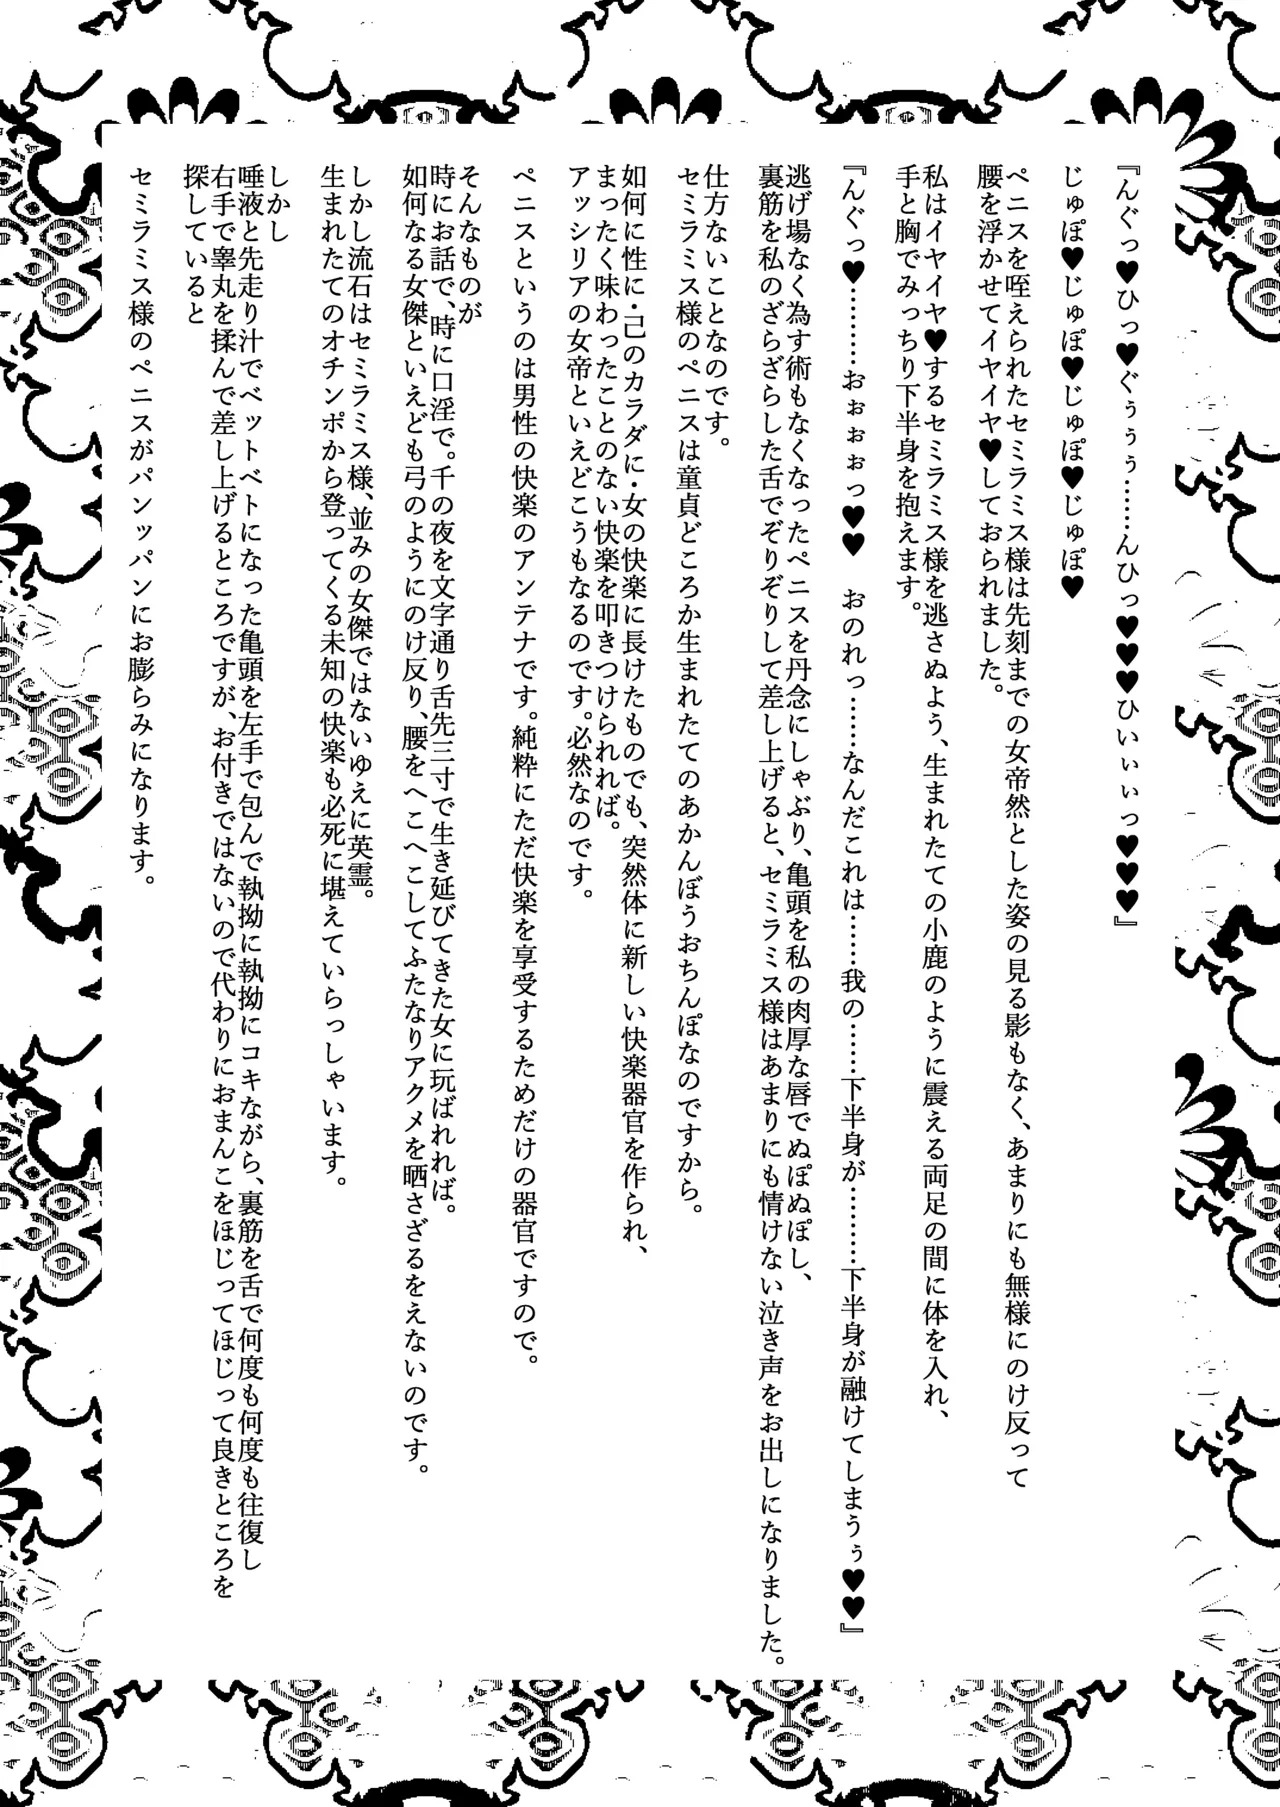 『んぐっ♥ひっ♥ぐぅぅぅ……んひっ♥♥♥ひいぃぃっ♥♥♥』
じゅぽ♥じゅぽ♥じゅぽ♥じゅぽ♥
ペニスを咥えられたセミラミス様は先刻までの女帝然とした姿の見る影もなく、あまりにも無様にのけ反って
腰を浮かせてイヤイヤ♥しておられました。
私はイヤイヤ♥するセミラミス様を逃さぬよう、生まれたての小鹿のように震える両足の間に体を入れ、
手と胸でみっちり下半身を抱えます。
『んぐっ♥………おぉぉぉっ♥♥　おのれっ……なんだこれは……我の……下半身が………下半身が融けてしまうぅ♥♥』
逃げ場なく為す術もなくなったペニスを丹念にしゃぶり、亀頭を私の肉厚な唇でぬぽぬぽし、
裏筋を私のざらざらした舌でぞりぞりして差し上げると、セミラミス様はあまりにも情けない泣き声をお出しになりました。
仕方ないことなのです。
セミラミス様のペニスは童貞どころか生まれたてのあかんぼうおちんぽなのですから。
如何に性に・己のカラダに・女の快楽に長けたものでも、突然体に新しい快楽器官を作られ、
まったく味わったことのない快楽を叩きつけられれば。
アッシリアの女帝といえどこうもなるのです。必然なのです。
ペニスというのは男性の快楽のアンテナです。純粋にただ快楽を享受するためだけの器官ですので。
そんなものが
時にお話で、時に口淫で。千の夜を文字通り舌先三寸で生き延びてきた女に玩ばれれば。
如何なる女傑といえども弓のようにのけ反り、腰をへこへこしてふたなりアクメを晒さざるをえないのです。
しかし流石はセミラミス様、並みの女傑ではないゆえに英霊。
生まれたてのオチンポから登ってくる未知の快楽も必死に堪えていらっしゃいます。
しかし
唾液と先走り汁でベットベトになった亀頭を左手で包んで執拗に執拗にコキながら、裏筋を舌で何度も何度も往復し
右手で睾丸を揉んで差し上げるところですが、お付きではないので代わりにおまんこをほじってほじって良きところを
探していると
セミラミス様のペニスがパンッパンにお膨らみになります。